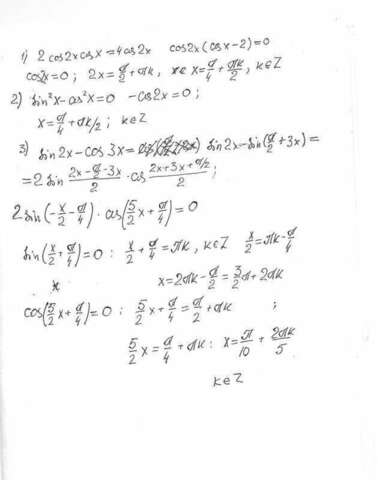 1) 2 cos2x cosx = 4cos2x cos2x(cosx-2)=0
cos2x=0; 2x=π/2+πk, x=π/4+πk/2, k∈Z
2) sin²x-cos²x=0 -cos2x=0;
x=π/4+πk/2; k∈Z
3) sin2x-cos3x= sin2x-sin(π/2+3x)=
=2sin (2x-π/2-3x)/2 · cos (2x+3x+π/2)/2;
2sin(-x/2-π/4)·cos(5/2x+π/4)=0
sin(x/2+π/4)=0: x/2+π/4=πk, k∈Z x/2=πk-π/4
x=2πk-π/2=3/2π+2πk
cos(5/2x+π/4)=0: 5/2x+π/4=π/2+πk ;
5/2x=π/4+πk: x=π/10+2πk/5
k∈Z